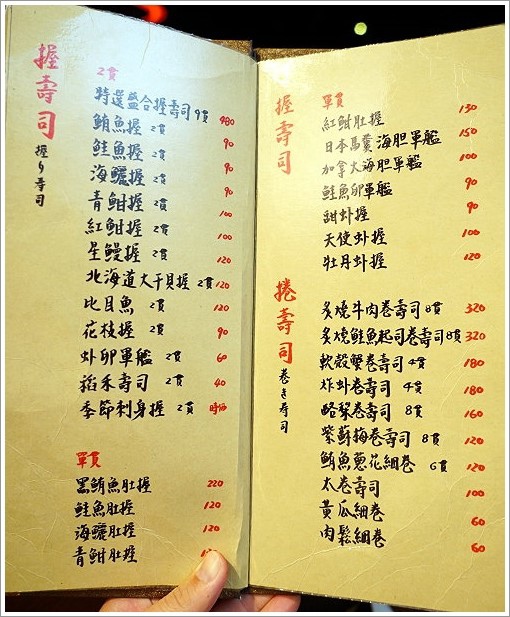 握壽司
握り寿司
2貫
特選盛合握壽司9貫 980
鮪魚握 2貫 90
鮭魚握 2貫 90
海鱺握 2貫 90
青魽握 2貫 100
紅魽握 2貫 100
星鰻握 2貫 120
北海道大干貝握 2貫 120
比目魚 2貫 120
花枝握 2貫 90
虾卵軍艦 2貫 60
稻禾壽司 2貫 40
季節刺身握 2貫 時価
單貫
黑鮪魚肚握 220
鮭魚肚握 120
海鱺肚握 120
青魽肚握
握壽司
單貫
紅魽肚握 130
日本馬糞海胆軍艦 150
加拿大海胆軍艦 100
鮭魚卵軍艦 90
甜虾握 90
天使虾握 100
牡丹虾握 120
捲壽司
巻き寿司
炙燒牛肉卷壽司8貫 320
炙燒鮭魚起司卷壽司8貫 320
軟殼蟹卷壽司 4貫 180
炸虾卷壽司 4貫 180
酪梨卷壽司 8貫 160
紫蘇梅卷壽司 8貫 120
鮪魚蔥花細卷 6貫 120
太卷壽司 100
黃瓜細卷 60
肉鬆細卷 60